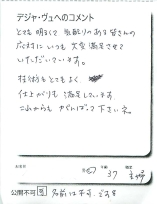 デジャ・ヴュへのコメント
とても明るくて気配りのある皆さんの
応対にいつも大変満足させて
いただいています。
技術もとてもよく、
仕上がりも満足しています。
これからもがんばって下さいネ。
37
主婦
公開不可
名前は不可、です